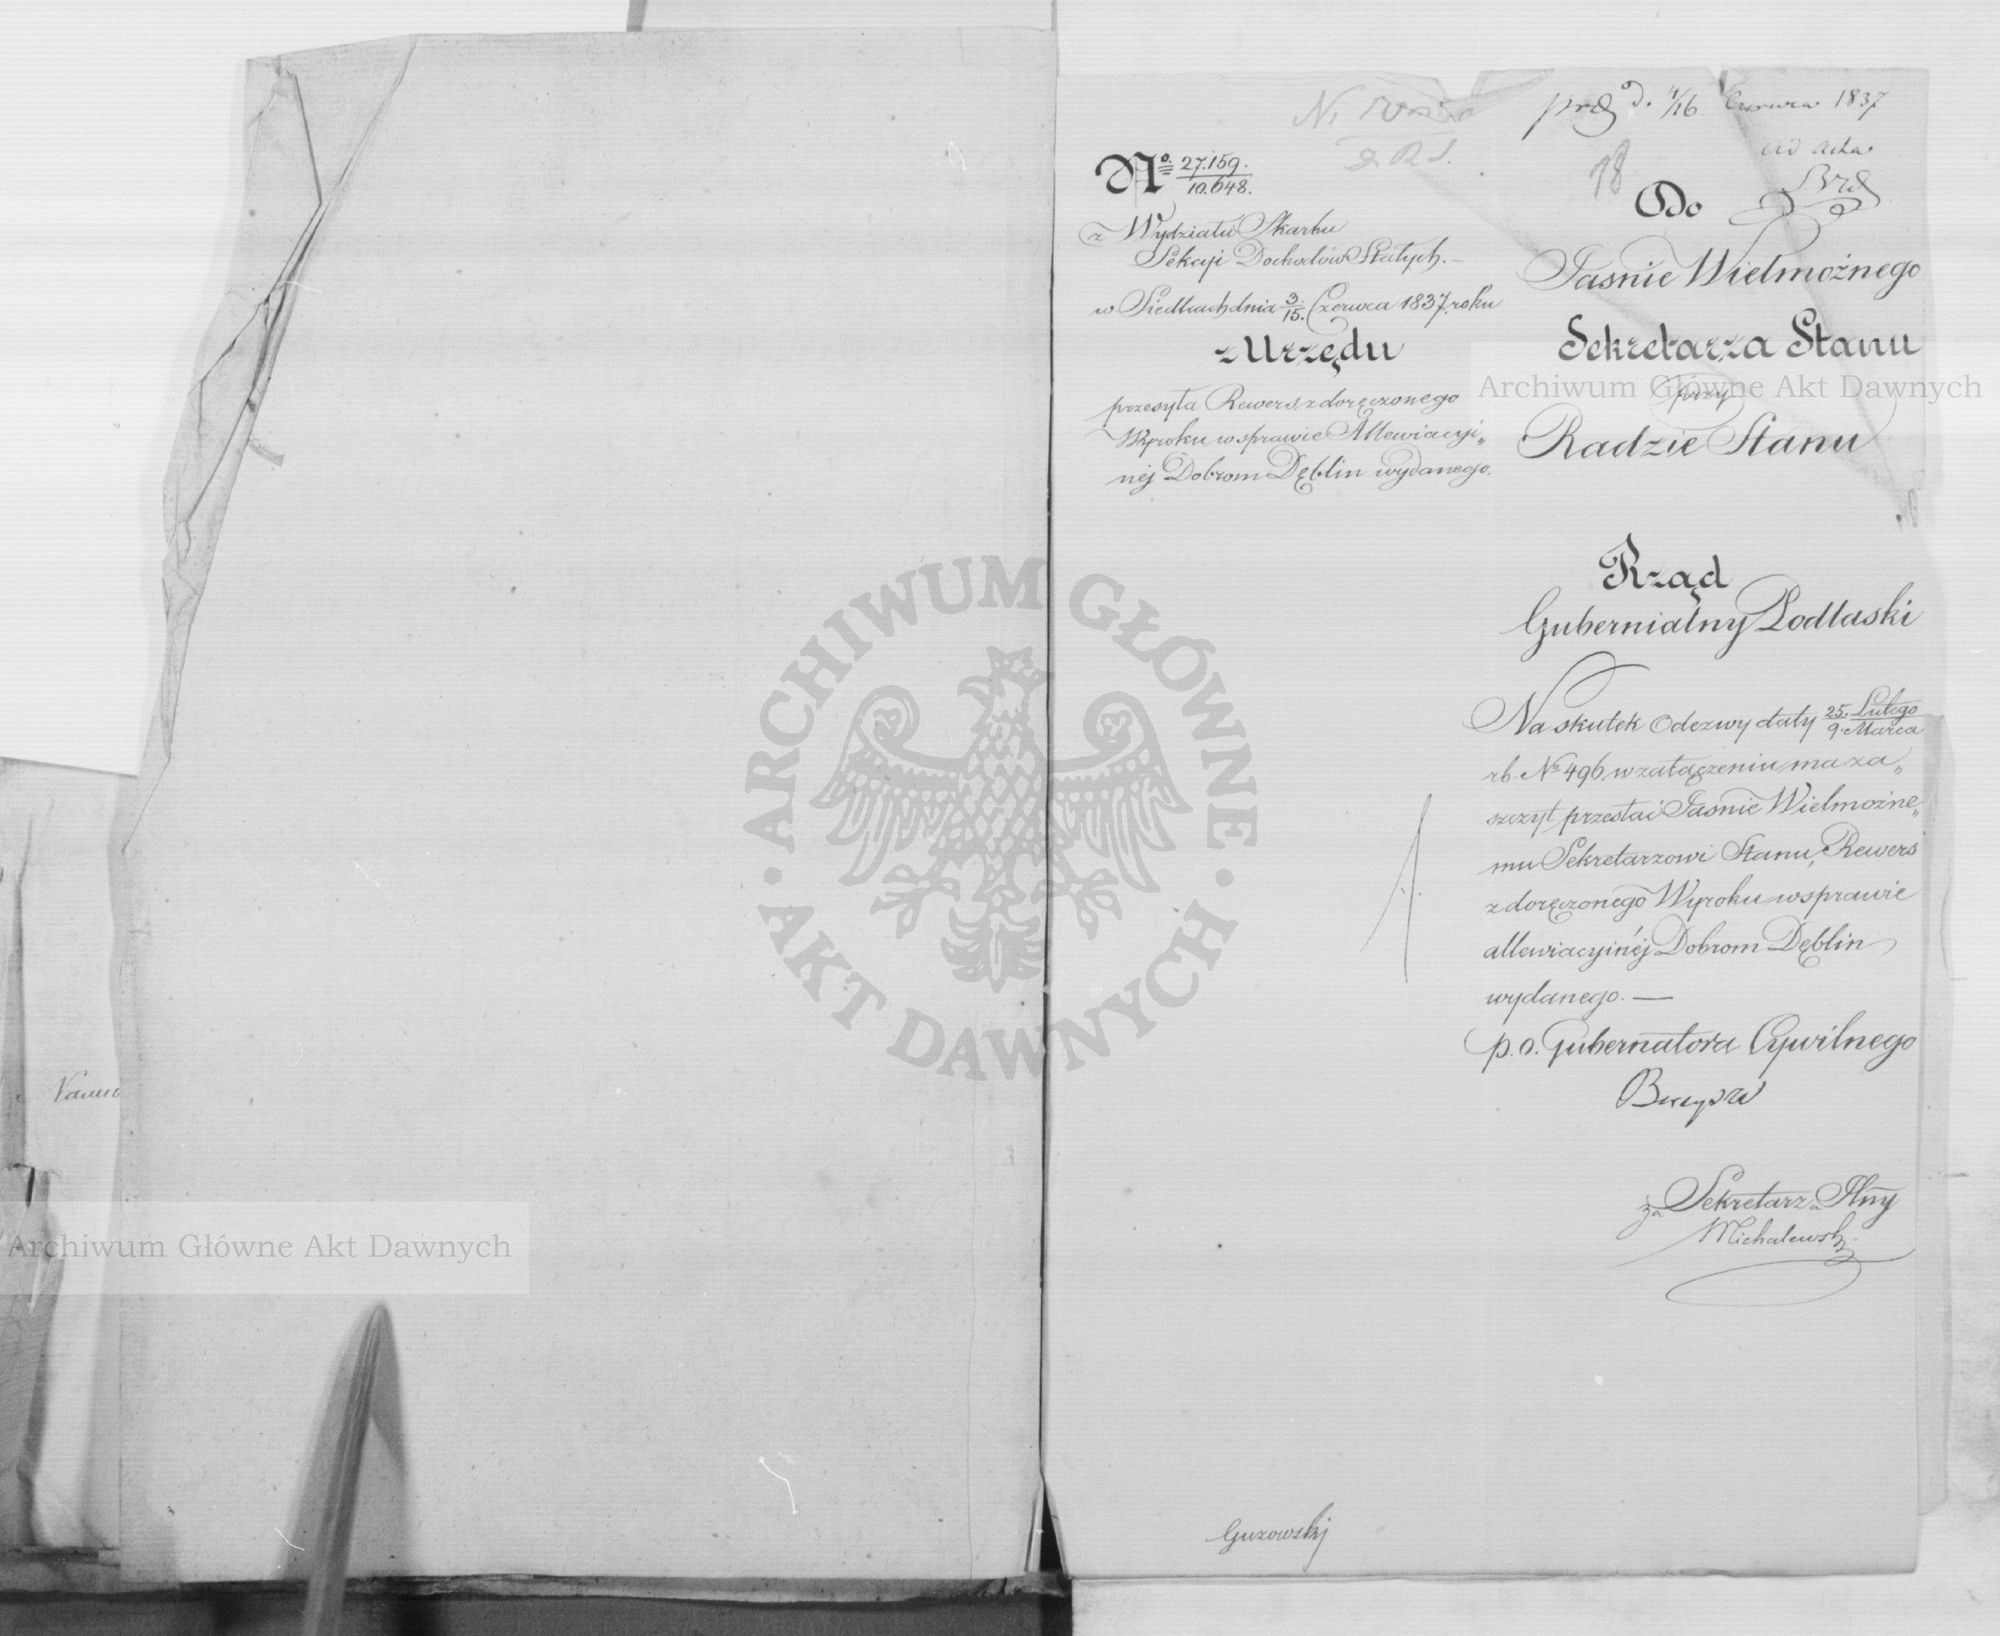 prd d. 4/16 Czerwca 1837
ad acta.
18
No. 27.159.
10.648.
z Wydziału Skarbu
Sekcyi Dochodów Stałych.—
w Siedlcach dnia 3/15. Czerwca 1837. roku
z Urzędu
przesyła Rewers z doręczonego
Wyroku w sprawie Allewiacyi„
néj Dobrom Dęblin wydanego.
Do
Jaśnie Wielmożnego
Sekretarza Stanu
przy
Radzie Stanu
Rząd
Gubernialny Podlaski
Na skutek Odezwy daty 25. Lutego
9. Marca
rb. No 496. w załączeniu ma za„
szczyt przesłać Jaśnie Wielmożne„
mu Sekretarzowi Stanu, Rewers
z doręczonego Wyroku w sprawie
allewiacyinéj Dobrom Dęblin
wydanego. —
p. o. Gubernatora Cywilnego
za Sekretarza Jlny
Michalewski
Guzowski
Archiwum Główne Akt Dawnych
ARCHIWUM GŁÓWNE
AKT DAWNYCH
Archiwum Główne Akt Dawnych